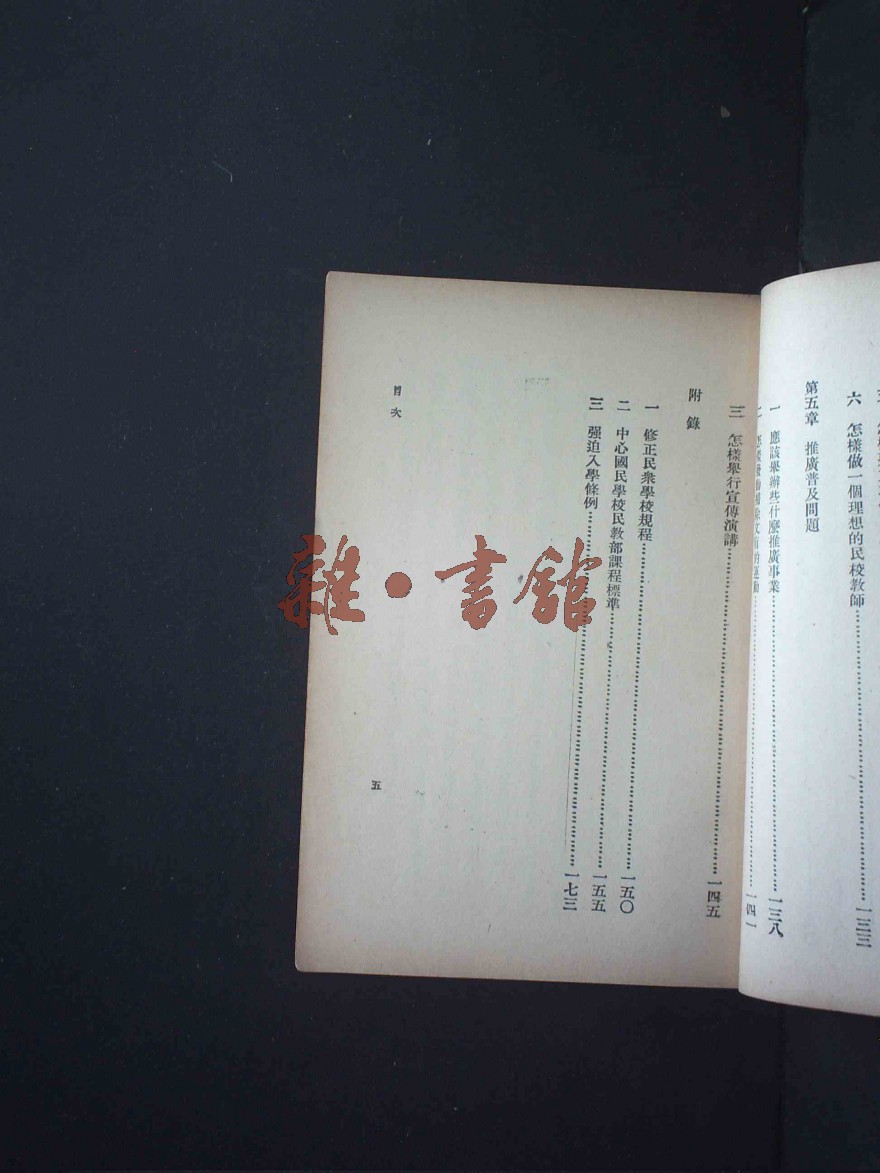 六 怎樣做一個理想的民校教師……一三三
第五章 推廣普及問題
一 應該舉辦些什麼推廣事業……一三八
二 的運動……一四一
三 怎樣舉行宣傳演講……一四五
附錄
一 修正民衆學校規程……一五〇
二 中心國民學校民教部課程標準……一五五
三 强迫入學條例……一七三
目次
五
雜·書館